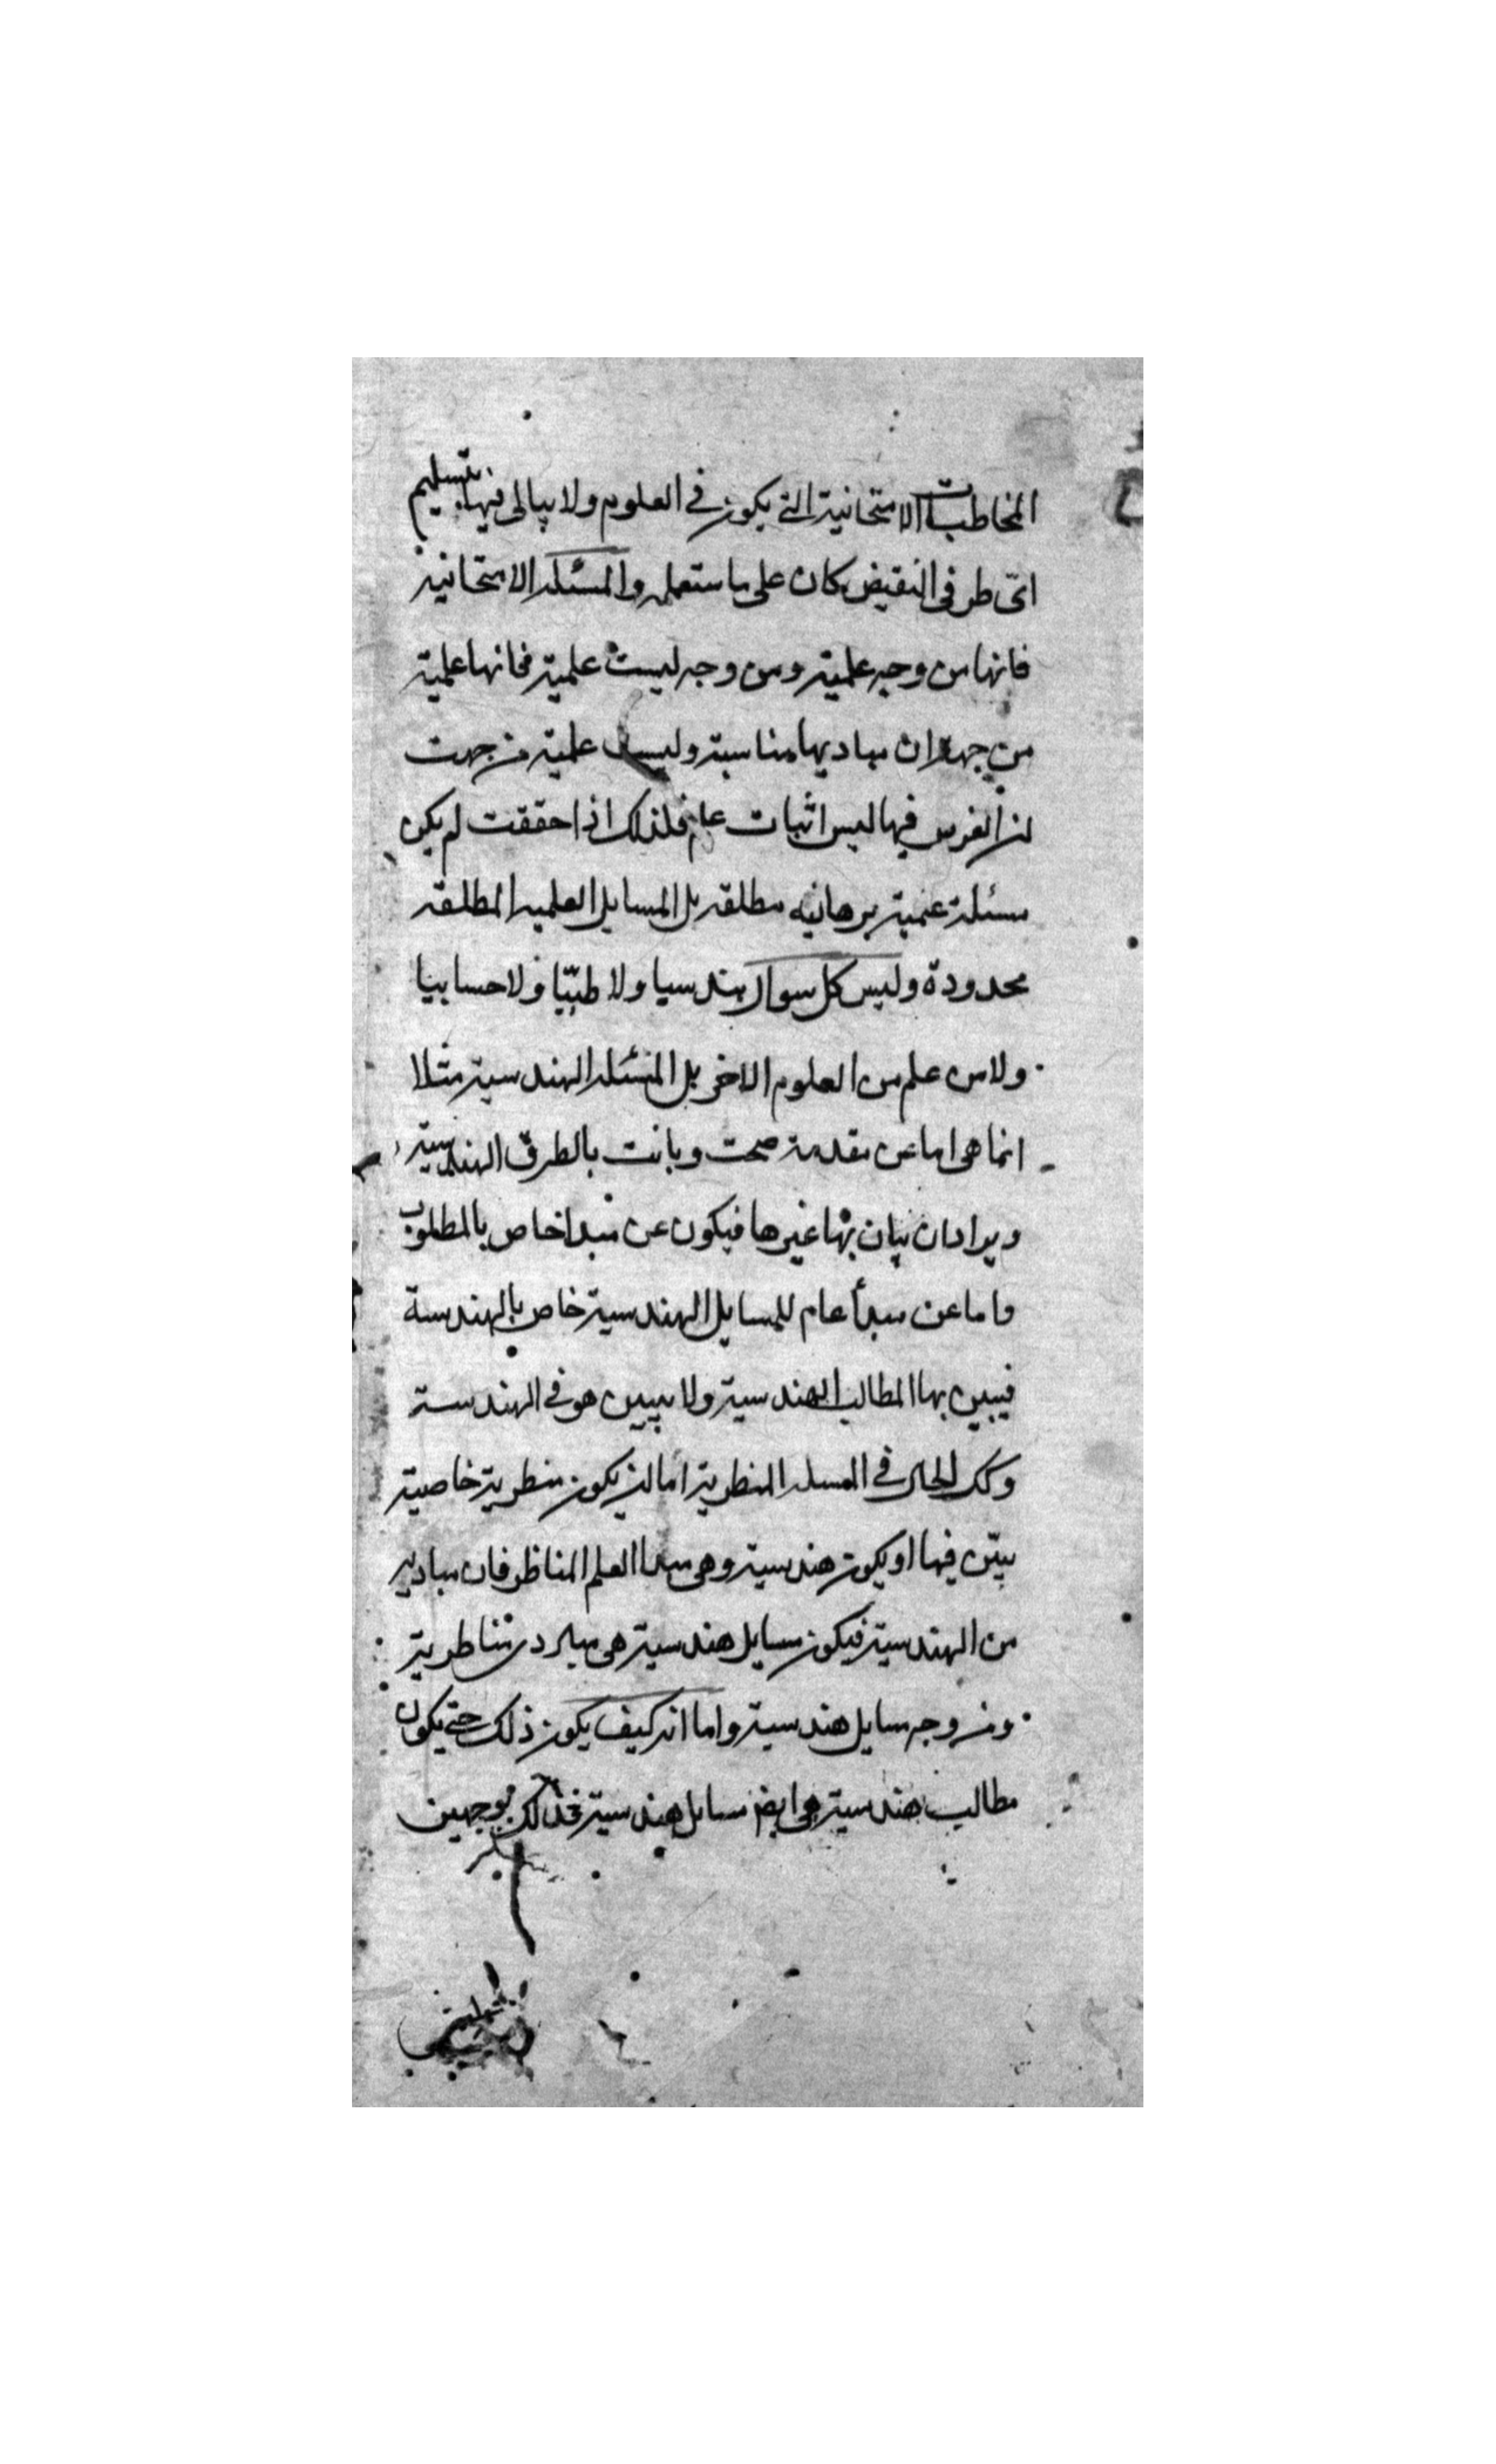 المخاطبات الامتحانية التى يكون فى العلوم ولا يبالى فيها بتسليم
اى طرفى النقيض كان على ما ستعمله والمسئلة الامتحانية
فانها من وجه علمية ومن وجه ليست علمية فانها علمية
من جهة ان مباديها مناسبة وليست علمية من جهت
ان الغرض فيها ليس اثبات علم فلذلك اذا حققت لم يكن
مسئلة علمية برهانيه مطلقه بل المسايل العلميه المطلقه
محدودة وليس كل سوال هندسيا ولا طبيّا ولا حسابيا
ولا من علم من العلوم الاخر بل المسئله الهندسية مثلا
انما هى اما عن مقدمة صحت وبانت بالطرق الهندسية
ويراد ان يبان بها غيرها فيكون عن مبدا خاص بالمطلوب
واما عن مبدأ عام للمسايل الهندسية خاص بالهندسة
فيبين بها المطالب الهندسية ولا يبين هو فى الهندسة
وكك الحال فى المسله المنظرية اما ان يكون منظرية خاصية
يبيّن فيها او يكون هندسية وهى مبدا العلم المناظر فان مباديه
من الهندسية فيكون مسايل هندسية هى مناظرية
ومن وجه مسايل هندسية واما انه كيف يكون ذلك حتى يكون
مطالب هندسية هى ايضا مسايل هندسية فذلك بوجهين